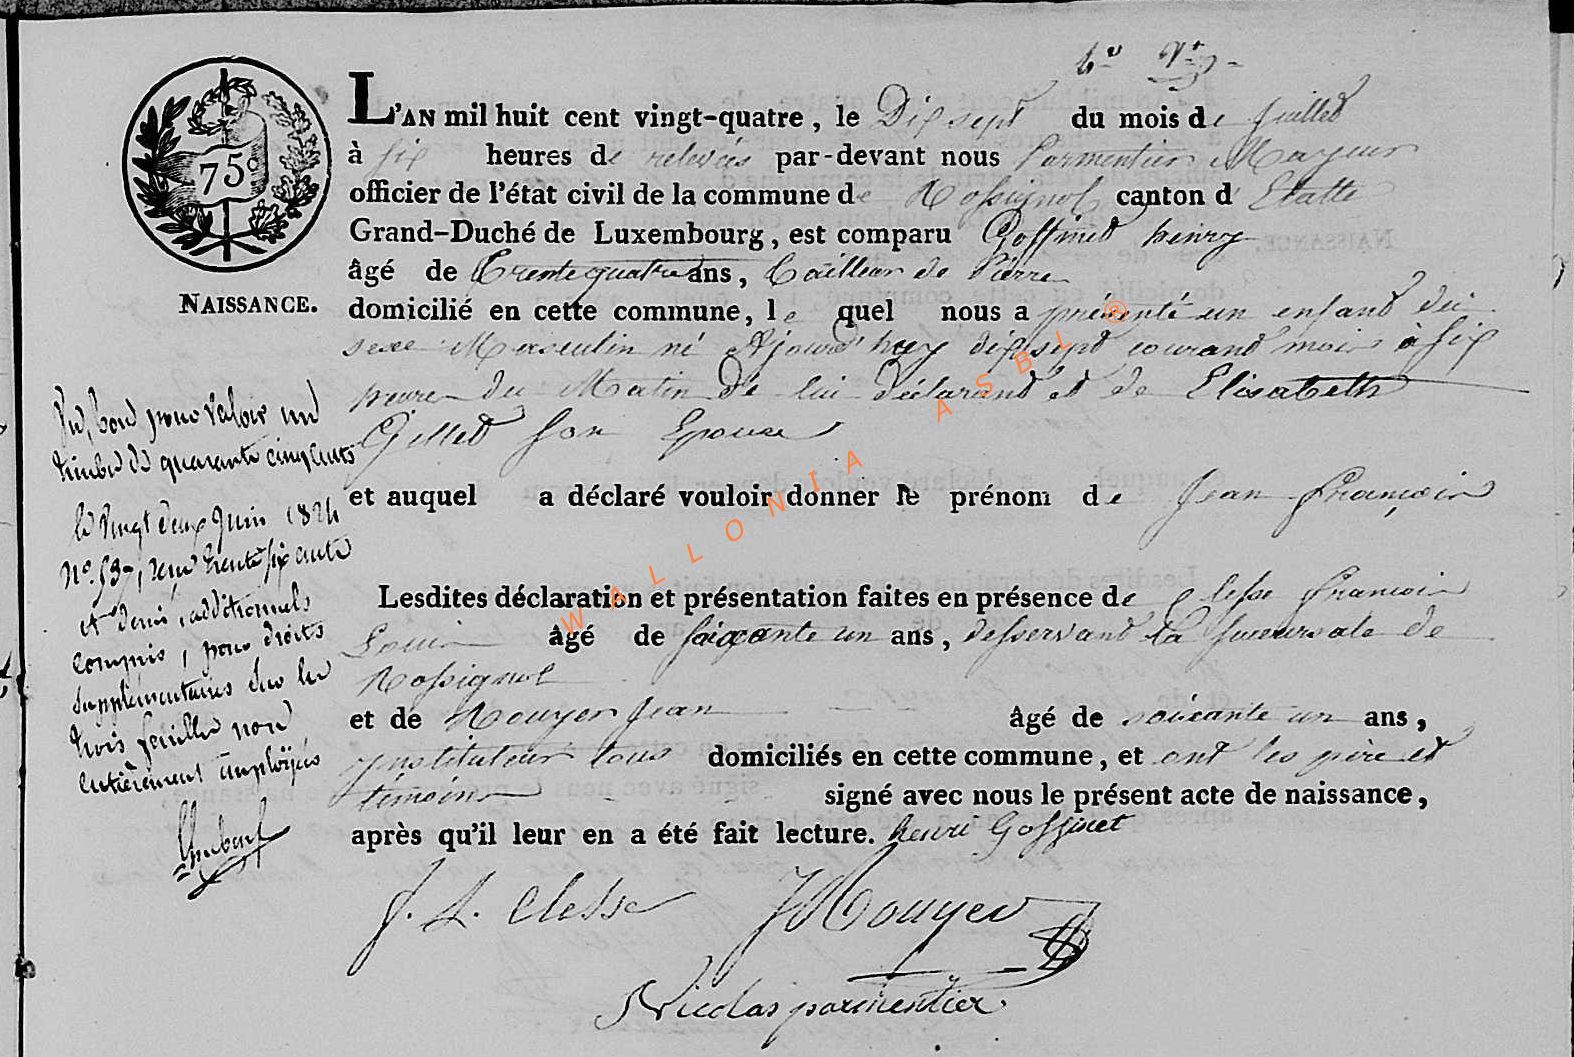 75c
L'AN mil huit cent vingt-quatre, le Dix sept du mois de Juillet
à six heures de relevés par-devant nous Parmentier Mayeur
officier de l'état civil de la commune de Rossignol canton d'Etalle
Grand-Duché de Luxembourg, est comparu Goffinet henry
âgé de Trente quatre ans, tailleur de Pierre
NAISSANCE.
domicilié en cette commune, le quel nous a présenté un enfant du
sexe Masculin né Ajourd'huy dix sept courant mois à six
heure du Matin de lui déclarant et de Elisabeth
Gillet son Epouse
et auquel a déclaré vouloir donner le prénom de Jean François
Lesdites déclaration et présentation faites en présence de Clesse François
Louis âgé de soixante un ans, desservant la succursale de
Rossignol
et de Rouyer Jean âgé de soixante un ans,
instituteur tous domiciliés en cette commune, et ont les père et
témoins signé avec nous le présent acte de naissance,
après qu'il leur en a été fait lecture. henri Goffinet
Vu, bon pour valoir un
timbre de quarante cinq cents
le vingt deux Juin 1824
No. 537, reçu trente six cents
et demi, additionnels
compris, pour droits
supplémentaires sur les
trois feuilles non
entièrement employées
f. L. Clesse JRouyer
Nicolas parmentier
WALLONIA ASBL ®